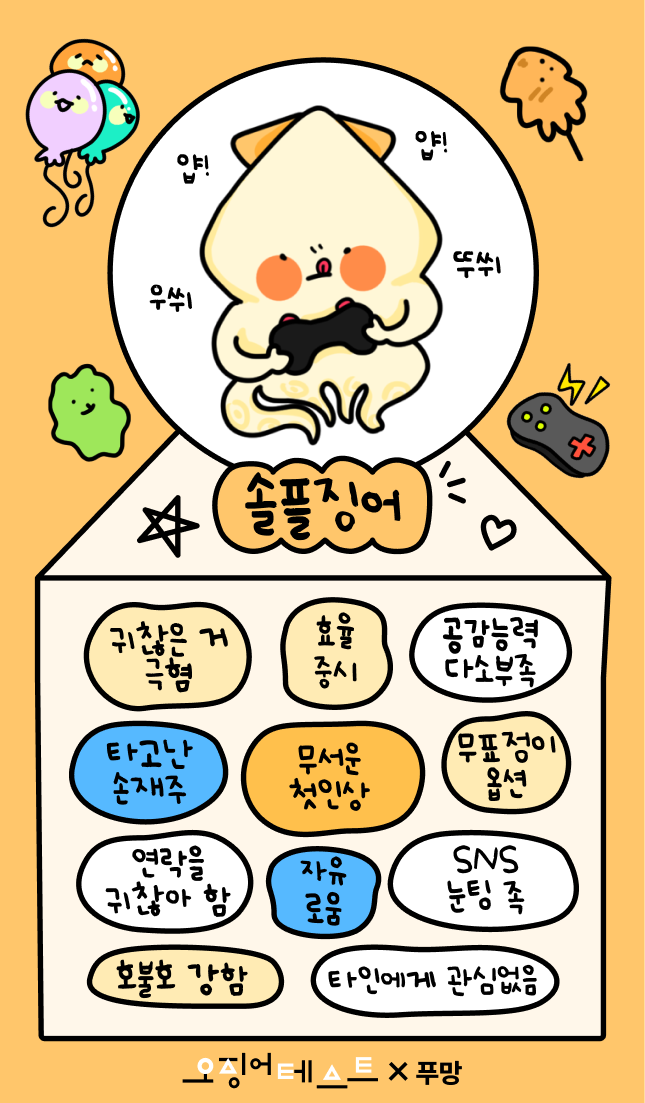 얍!
얍!
우쒸
뚜쒸
솔플징어
귀찮은 거
극혐
효율
중시
공감능력
다소부족
타고난
손재주
무서운
첫인상
무표정이
옵션
연락을
귀찮아 함
자유
로움
SNS
눈팅 족
호불호 강함
타인에게 관심없음
오징어테스트 × 푸망